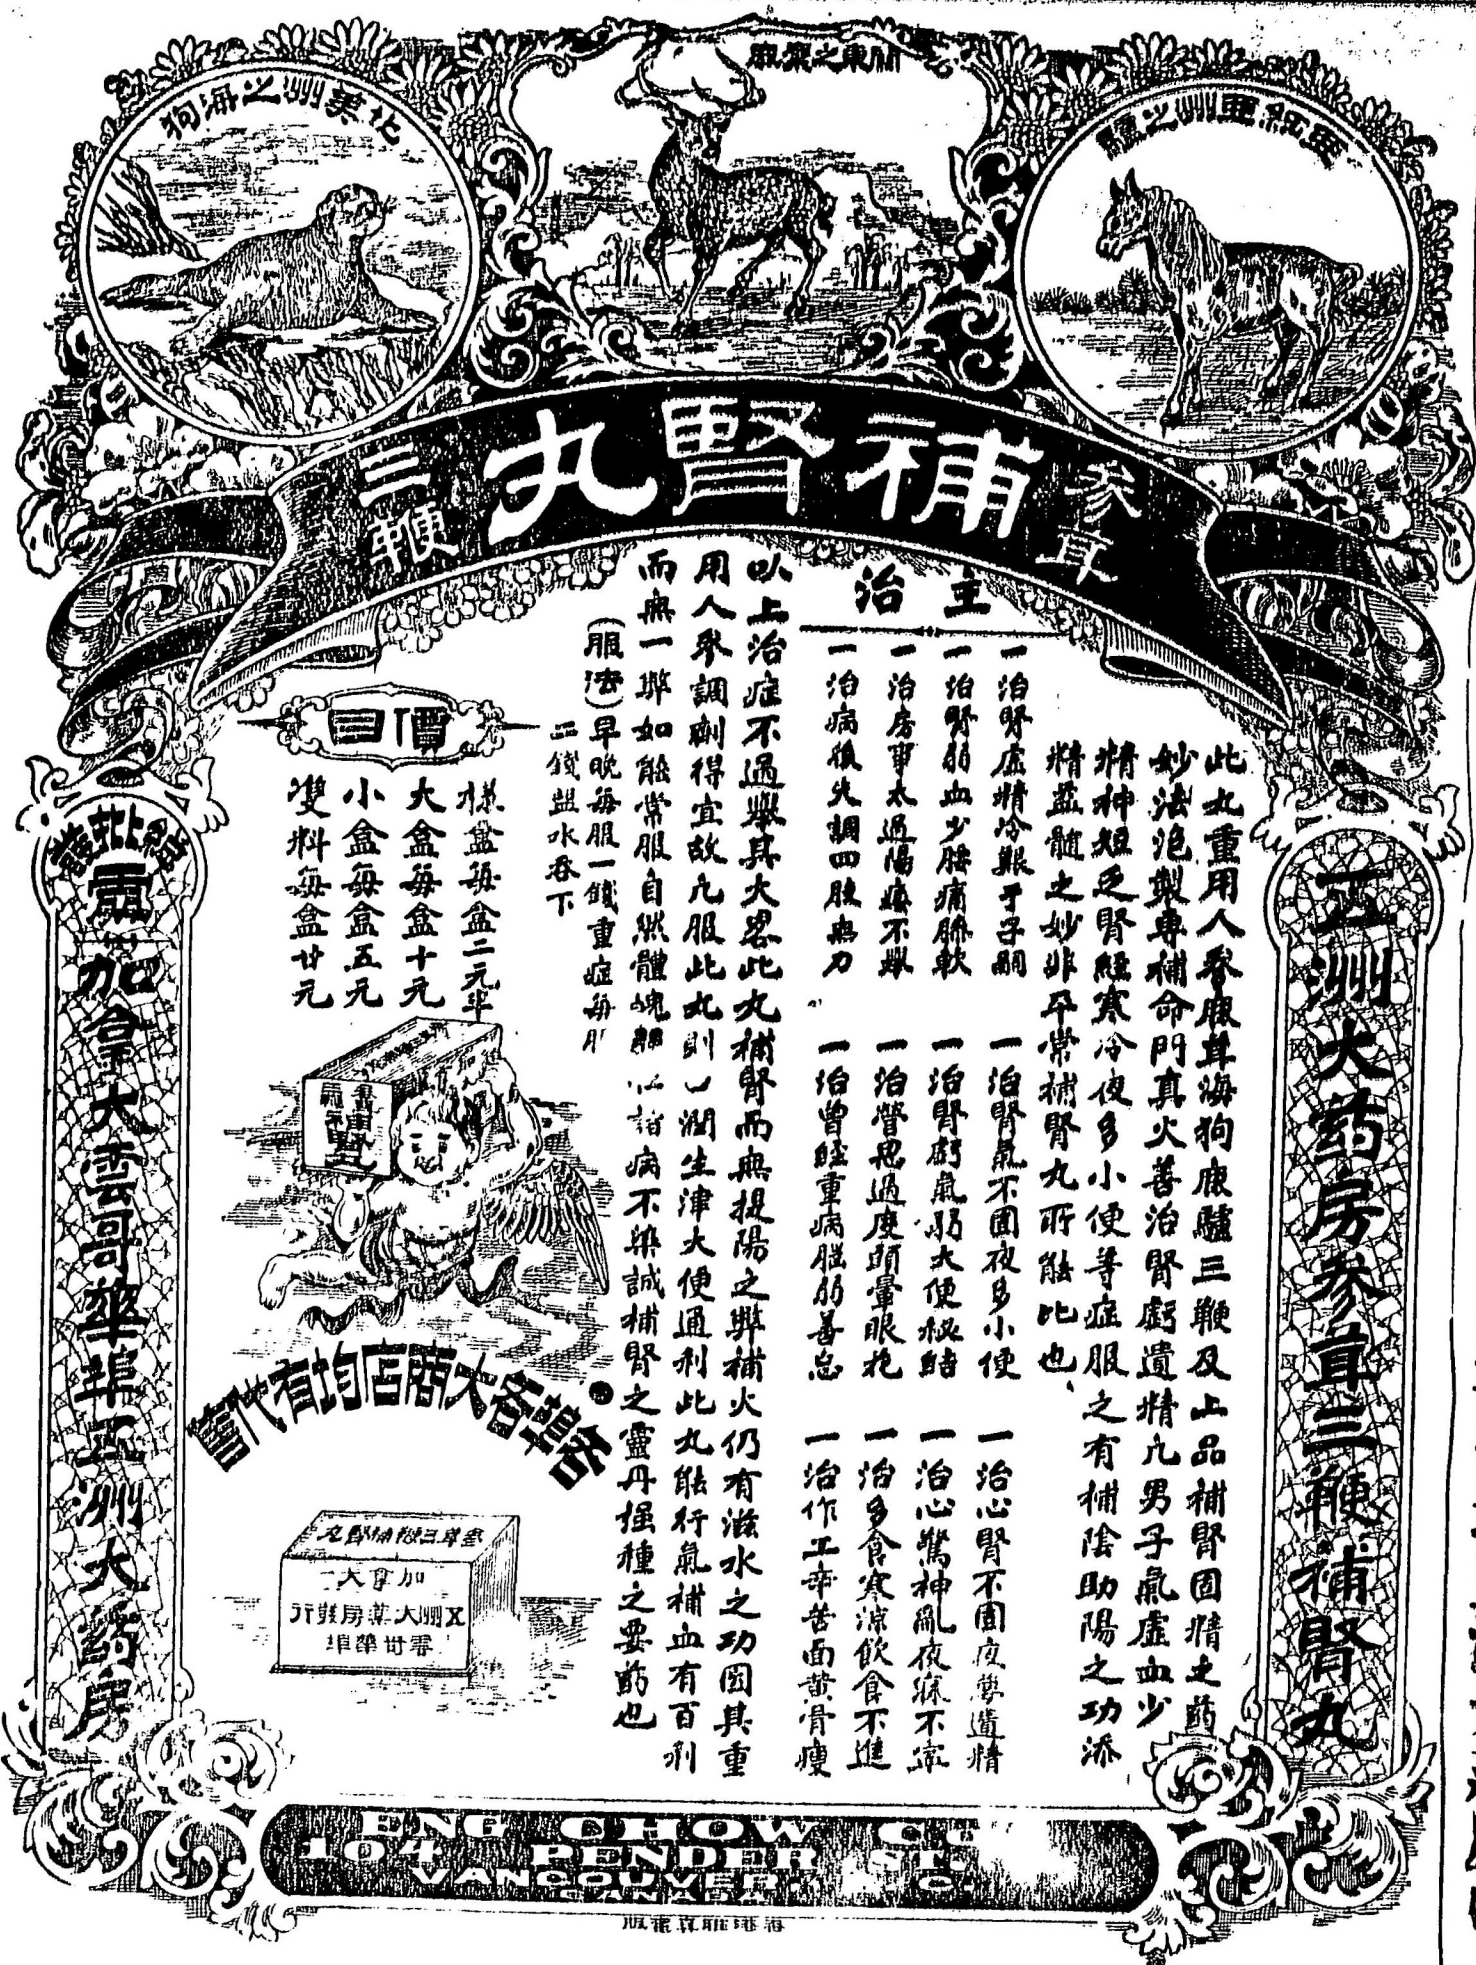 北美州之海狗
關東之梅鹿
歐羅亞洲之驢
參茸
補腎丸
三鞭
五洲大药房參茸三鞭補腎丸
此丸重用人參鹿茸海狗鹿驢三鞭及上品補腎固精之药
妙法泡製專補命門真火善治腎虧遺精凢男子氣虛血少
精神短乏腎經寒冷夜多小便等症服之有補陰助陽之功添
精益髓之妙非平常補腎丸所能比也
主治
一治腎虛精冷艱于子嗣
一治腎氣不固夜多小便
一治心腎不固夜夢遺精
一治腎弱血少腰痛腳軟
一治腎虧氣弱大便秘結
一治心驚神亂夜寐不寧
一治房事太過陽痿不舉
一治營思過度頭暈眼花
一治多食寒涼飲食不進
一治病後失調四肢無力
一治曾經重病腦弱善忘
一治作工辛苦面黃骨瘦
以上治症不過舉其大畧此丸補腎而無提陽之弊補火仍有滋水之功因其重
用人參調劑得宜故凢服此丸則 潤生津大便通利此丸能行氣補血有百利
而無一弊如能常服自然體 諸病不染誠補腎之靈丹強種之要药也
(服法)早晚每服一錢重症每服
二錢盐水吞下
價目
樣盒每盒二元半
大盒每盒十元
小盒每盒五元
双料每盒廿元
補腎
各埠各大商店均有代售
參茸三鞭補腎丸
加拿大
五洲大葯房發行
雲哥華埠
總批發處
加拿大雲哥華埠五洲大葯房
ENG CHOW
104 PENDER ST.
VANCOUVER, C.
CANADA